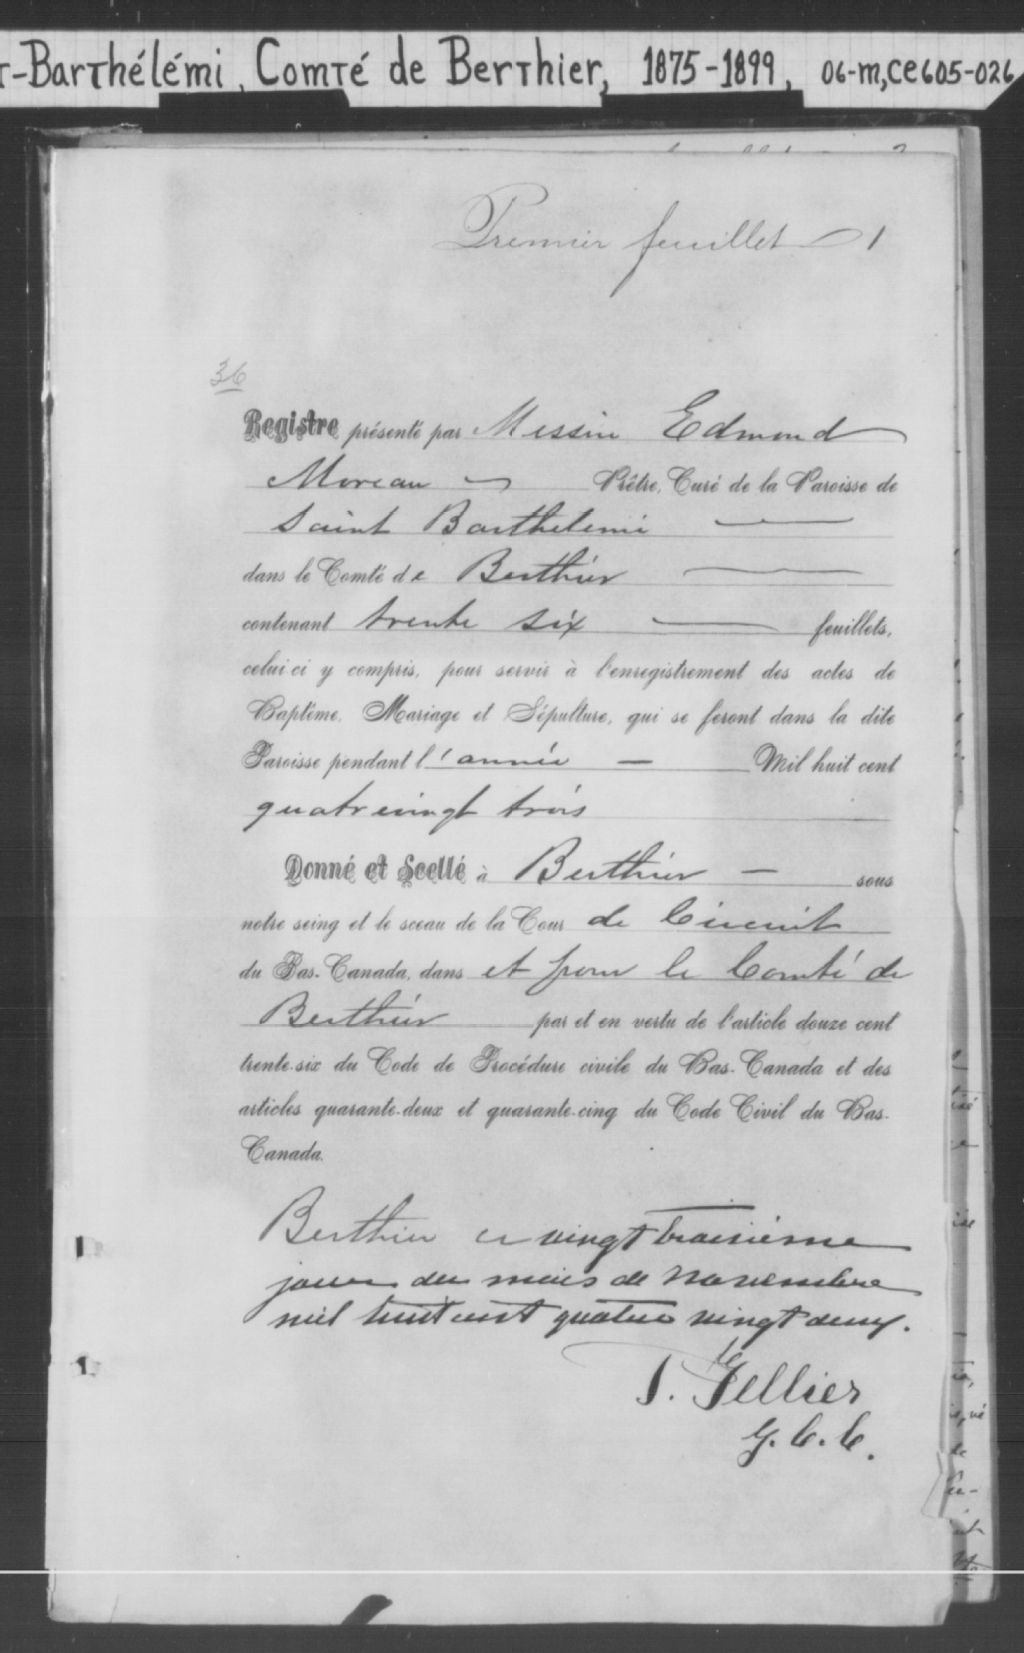 T-Barthélémi, Comté de Berthier, 1875-1899, 06-M,CE605-026
Premier feuillet — 1
36
Registre présenté par Messire Edmond
Moreau — Prêtre, Curé de la Paroisse de
Saint Barthelemi —
dans le Comté de Berthier —
contenant trente six — feuillets,
celui ci y compris, pour servir à l'enregistrement des actes de
Baptême, Mariage et Sépulture, qui se feront dans la dite
Paroisse pendant l'année — Mil huit cent
quatrevingt trois
Donné et Scellé à Berthier — sous
notre seing et le sceau de la Cour de Circuit
du Bas-Canada, dans et pour le Comté de
Berthier par et en vertu de l'article douze cent
trente-six du Code de Procédure civile du Bas-Canada et des
articles quarante-deux et quarante-cinq du Code Civil du Bas-
Canada.
Berthier ce vingt troisième
jour du mois de novembre
mil huit cent quatre vingt deux.
Tellier
G. C. C.